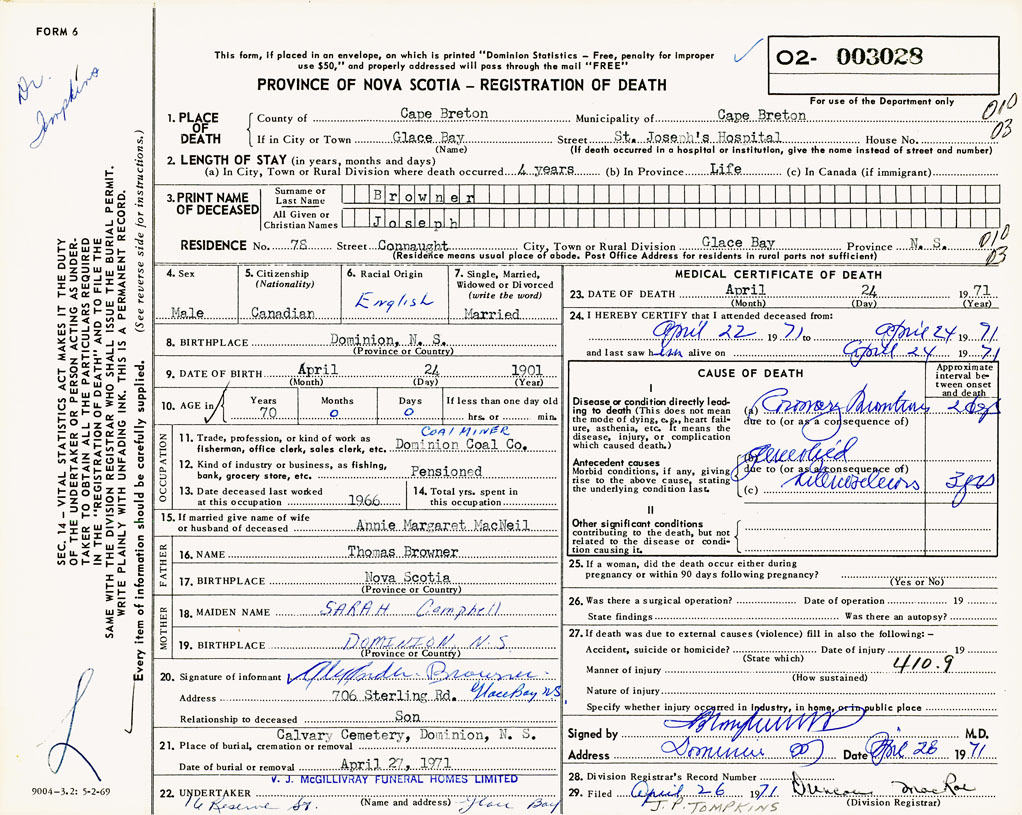 FORM 6
Dr. Tompkins
This form, if placed in an envelope, on which is printed "Dominion Statistics – Free, penalty for improper
use $50," and properly addressed will pass through the mail "FREE"
PROVINCE OF NOVA SCOTIA – REGISTRATION OF DEATH
02- 003028
For use of the Department only
SEC. 14 – VITAL STATISTICS ACT MAKES IT THE DUTY
OF THE UNDERTAKER OR PERSON ACTING AS UNDER-
TAKER TO OBTAIN ALL THE PARTICULARS REQUIRED
IN THE "REGISTRATION OF DEATH" AND TO FILE THE
SAME WITH THE DIVISION REGISTRAR WHO SHALL ISSUE THE BURIAL PERMIT.
WRITE PLAINLY WITH UNFADING INK. THIS IS A PERMANENT RECORD.
Every item of information should be carefully supplied. (See reverse side for instructions.)
9004-3.2: 5-2-69
1. PLACE OF DEATH
County of Cape Breton Municipality of Cape Breton
010
03
If in City or Town Glace Bay Street St. Joseph's Hospital House No.
(Name) (If death occurred in a hospital or institution, give the name instead of street and number)
2. LENGTH OF STAY (in years, months and days)
(a) In City, Town or Rural Division where death occurred 4 years (b) In Province Life (c) In Canada (if immigrant)
3. PRINT NAME OF DECEASED
Surname or Last Name Browner
All Given or Christian Names Joseph
RESIDENCE No. 78 Street Connaught City, Town or Rural Division Glace Bay Province N. S.
010
03
(Residence means usual place of abode. Post Office Address for residents in rural parts not sufficient)
4. Sex
Male
5. Citizenship
(Nationality)
Canadian
6. Racial Origin
English
7. Single, Married,
Widowed or Divorced
(write the word)
Married
8. BIRTHPLACE Dominion, N. S.
(Province or Country)
9. DATE OF BIRTH April 24 1901
(Month) (Day) (Year)
10. AGE in
Years Months Days If less than one day old
70 0 0 hrs. or min.
OCCUPATION
COAL MINER
11. Trade, profession, or kind of work as
fisherman, office clerk, sales clerk, etc. Dominion Coal Co.
12. Kind of industry or business, as fishing,
bank, grocery store, etc. Pensioned
13. Date deceased last worked
at this occupation 1966
14. Total yrs. spent in
this occupation
15. If married give name of wife
or husband of deceased Annie Margaret MacNeil
FATHER
16. NAME Thomas Browner
17. BIRTHPLACE Nova Scotia
(Province or Country)
MOTHER
18. MAIDEN NAME SARAH Campbell
19. BIRTHPLACE DOMINION, N.S
(Province or Country)
20. Signature of informant Alexander Browner
Address 706 Sterling Rd. Glace Bay NS
Relationship to deceased Son
Calvary Cemetery, Dominion, N. S.
21. Place of burial, cremation or removal
Date of burial or removal April 27, 1971
V. J. McGILLIVRAY FUNERAL HOMES LIMITED
22. UNDERTAKER
16 Reserve St. (Name and address) Glace Bay
MEDICAL CERTIFICATE OF DEATH
23. DATE OF DEATH April 24 1971
(Month) (Day) (Year)
24. I HEREBY CERTIFY that I attended deceased from:
April 22 1971 to April 24 1971
and last saw him alive on April 24 1971
CAUSE OF DEATH
Approximate
interval be-
tween onset
and death
I
Disease or condition directly lead-
ing to death (This does not mean
the mode of dying, e.g., heart fail-
ure, asthenia, etc. It means the
disease, injury, or complication
which caused death.)
(a) Coronary
due to (or as a consequence of)
Antecedent causes
Morbid conditions, if any, giving
rise to the above cause, stating
the underlying condition last.
(b)
due to (or as a consequence of)
(c) 3 yrs
II
Other significant conditions
contributing to the death, but not
related to the disease or condi-
tion causing it.
25. If a woman, did the death occur either during
pregnancy or within 90 days following pregnancy?
(Yes or No)
26. Was there a surgical operation? Date of operation 19
State findings Was there an autopsy?
27. If death was due to external causes (violence) fill in also the following: –
Accident, suicide or homicide? Date of injury 19
(State which)
410.9
Manner of injury
(How sustained)
Nature of injury
Specify whether injury occurred in industry, in home, or in public place
Signed by M.D.
Address Dominion Date April 26 1971
28. Division Registrar's Record Number
29. Filed April 26 1971 Duncan MacRae
J. P. TOMPKINS (Division Registrar)